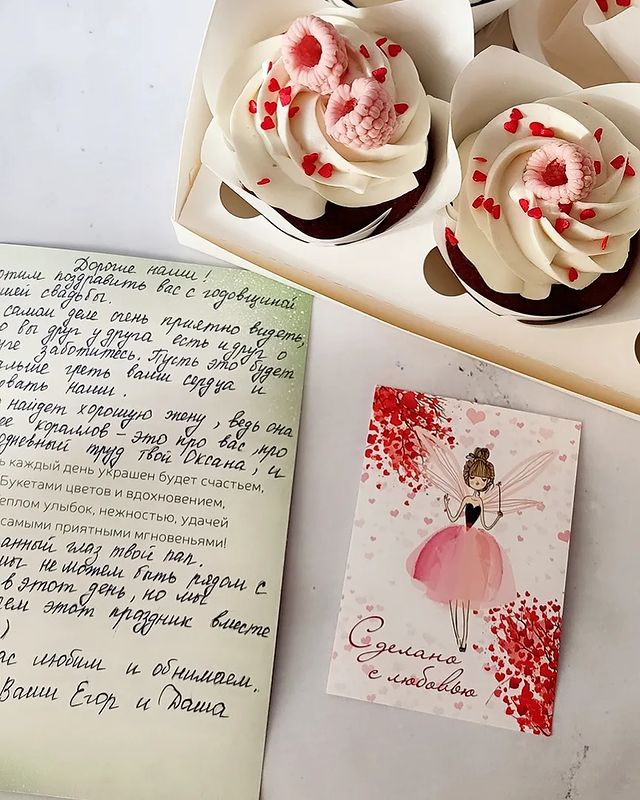 Дорогие наши!
отим поздравить вас с годовщиной
шей свадьбы.
самом деле очень приятно видеть,
о вы друг у друга есть и друг о
уге заботитесь. Пусть это будет
альше греть ваши сердца и
овать наши.
найдет хорошую жену, ведь она
е кораллов - это про вас, про
одневный труд твой Оксана, и
ь каждый день украшен будет счастьем,
Букетами цветов и вдохновением,
еплом улыбок, нежностью, удачей
самыми приятными мгновеньями!
анный глаз твой пап.
мы не можем быть рядом с
в этот день, но мы
ем этот праздник вместе
)
ас любим и обнимаем.
Ваши Егор и Даша
Сделано
с любовью